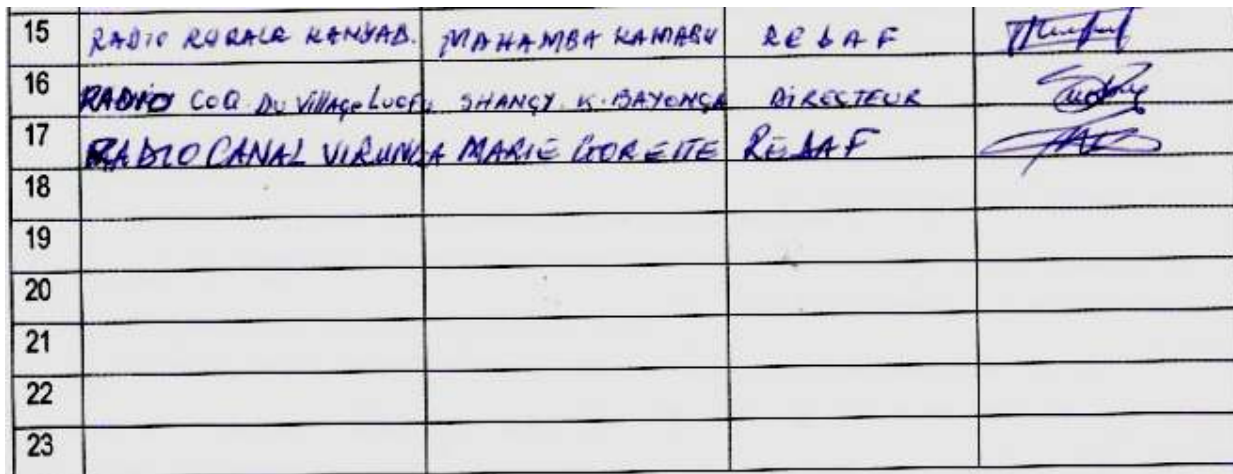 15 RADIO RURALE KANYAB. MAHAMBA KAMABU REDAF
16 RADIO COQ DU VILLAGE SHANGY K. BAYONGA DIRECTEUR
17 RADIO CANAL VIRUNGA MARIE GORETTE REDAF
18
19
20
21
22
23